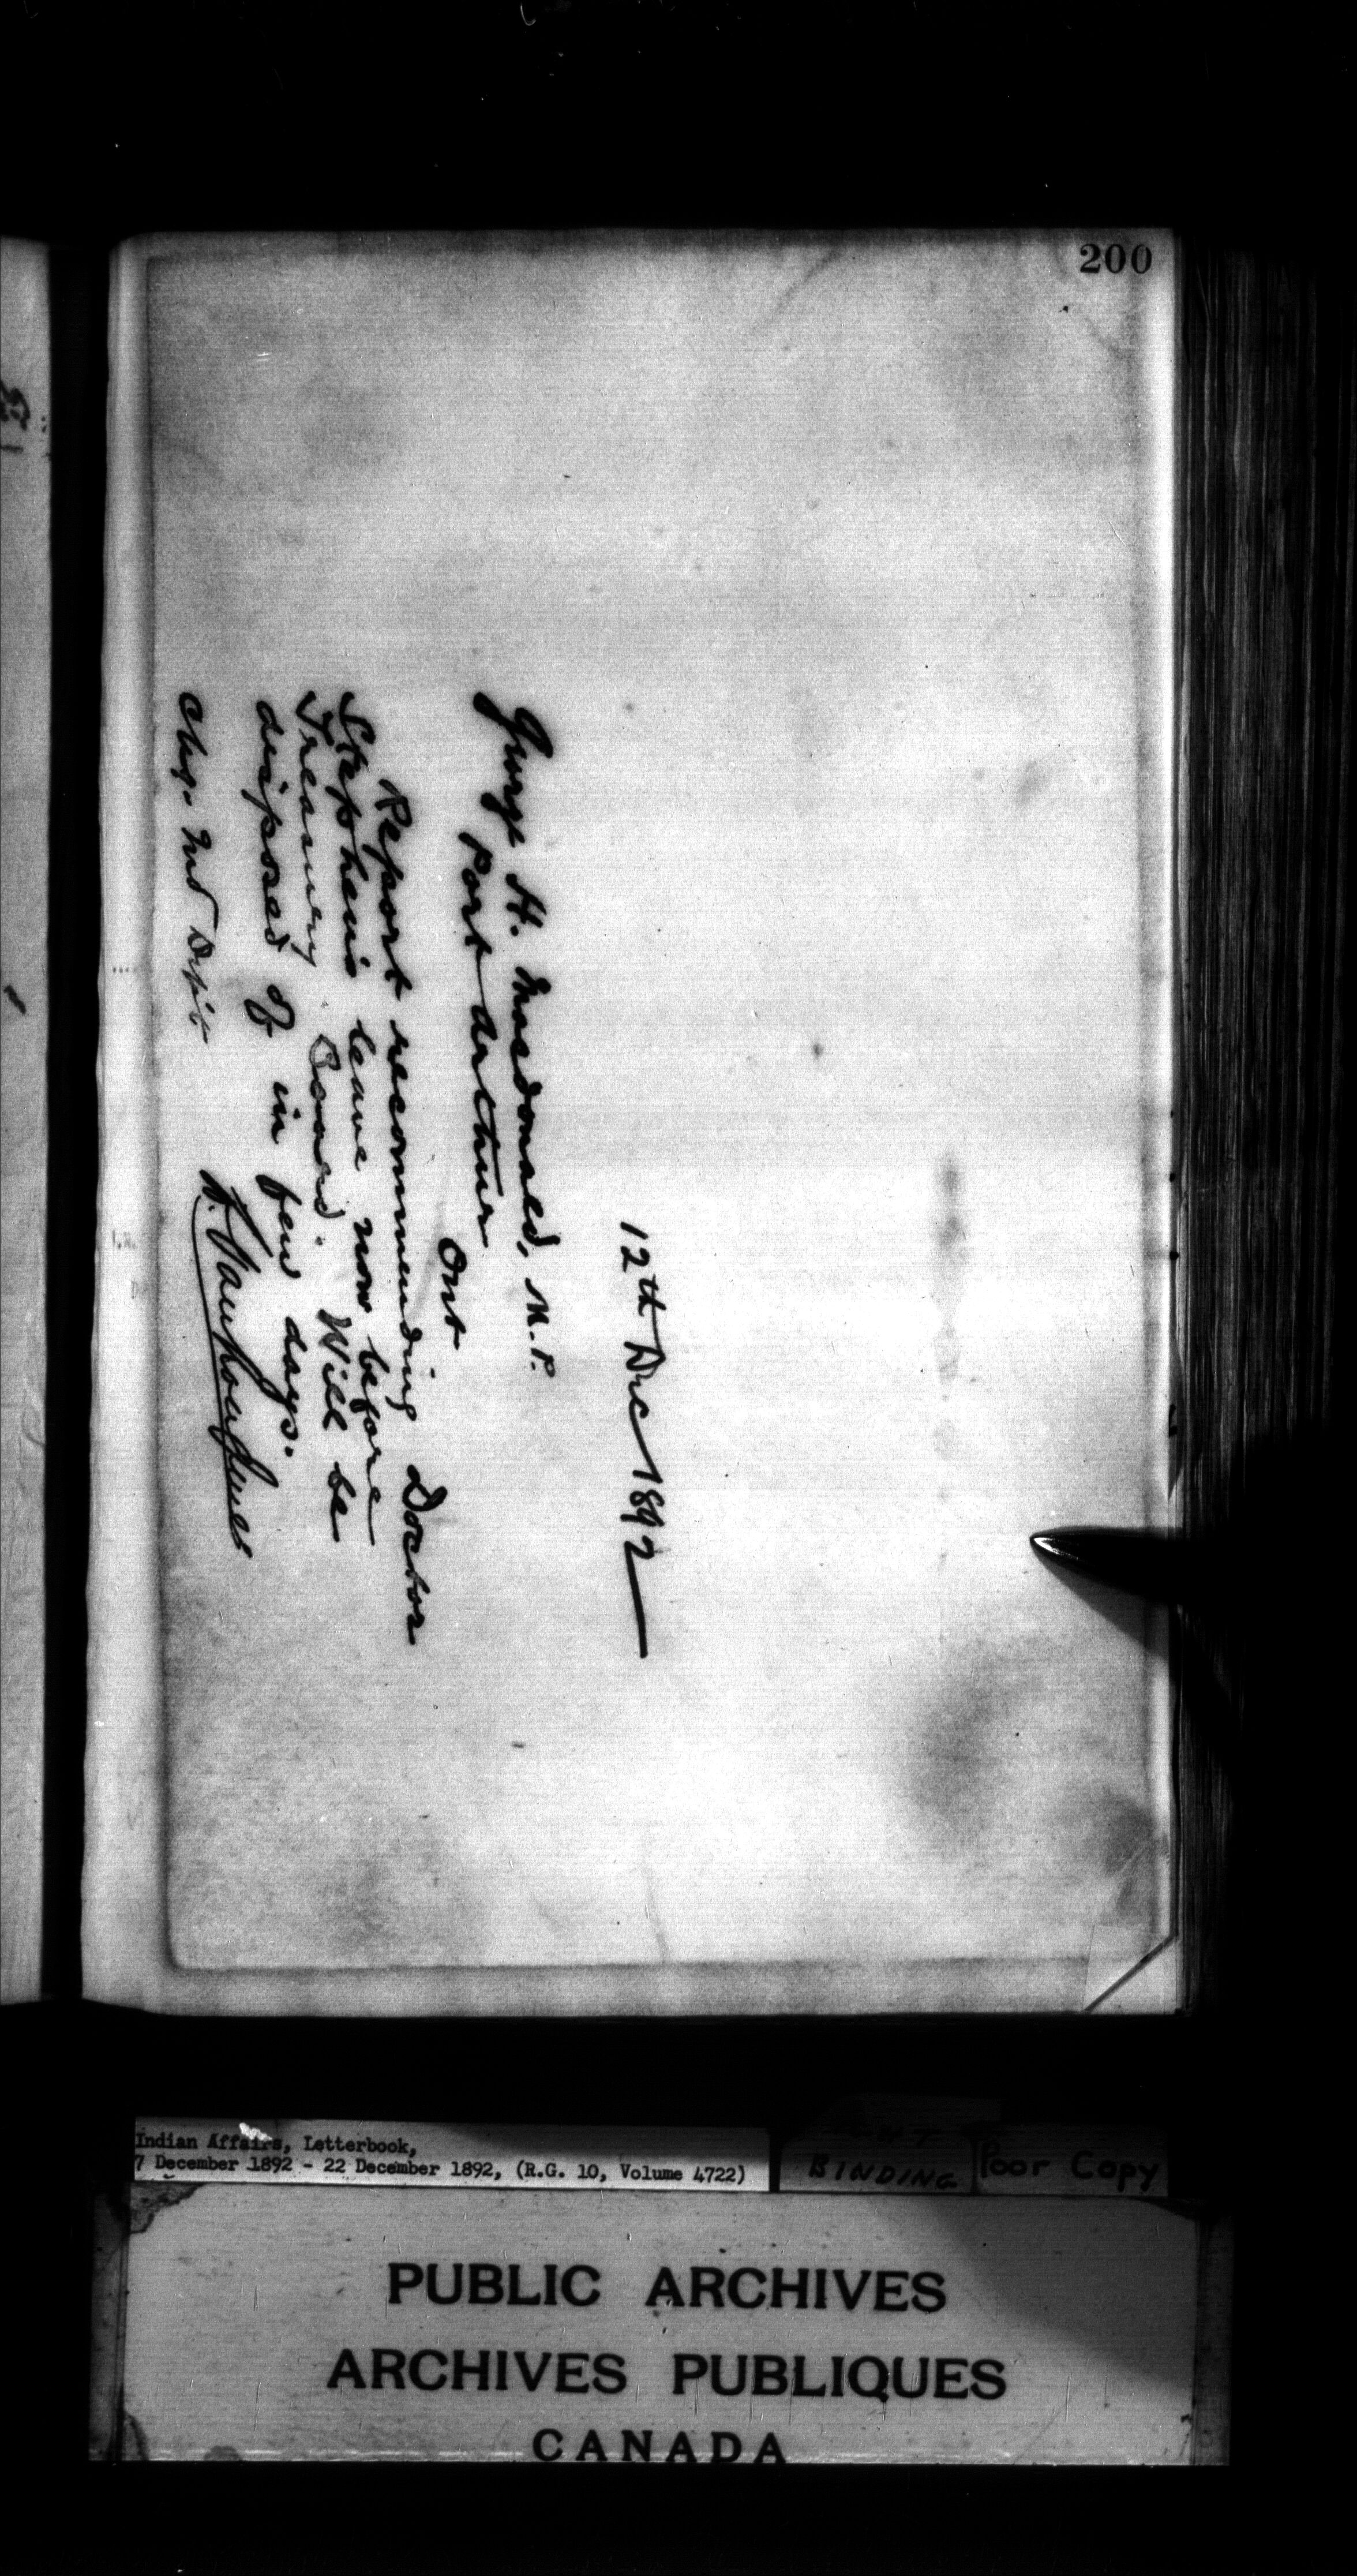 200
12th Dec 1892
George H. Macdonald, M.P.
Port Arthur
Ont
Report recommending Doctor
Stephen's leave now before
Treasury Board. Will be
disposed of in few days.
L. Vankoughnet
Chg. Ind Dep't
Indian Affairs, Letterbook,
7 December 1892 - 22 December 1892, (R.G. 10, Volume 4722)
BINDING
Poor Copy
PUBLIC ARCHIVES
ARCHIVES PUBLIQUES
CANADA